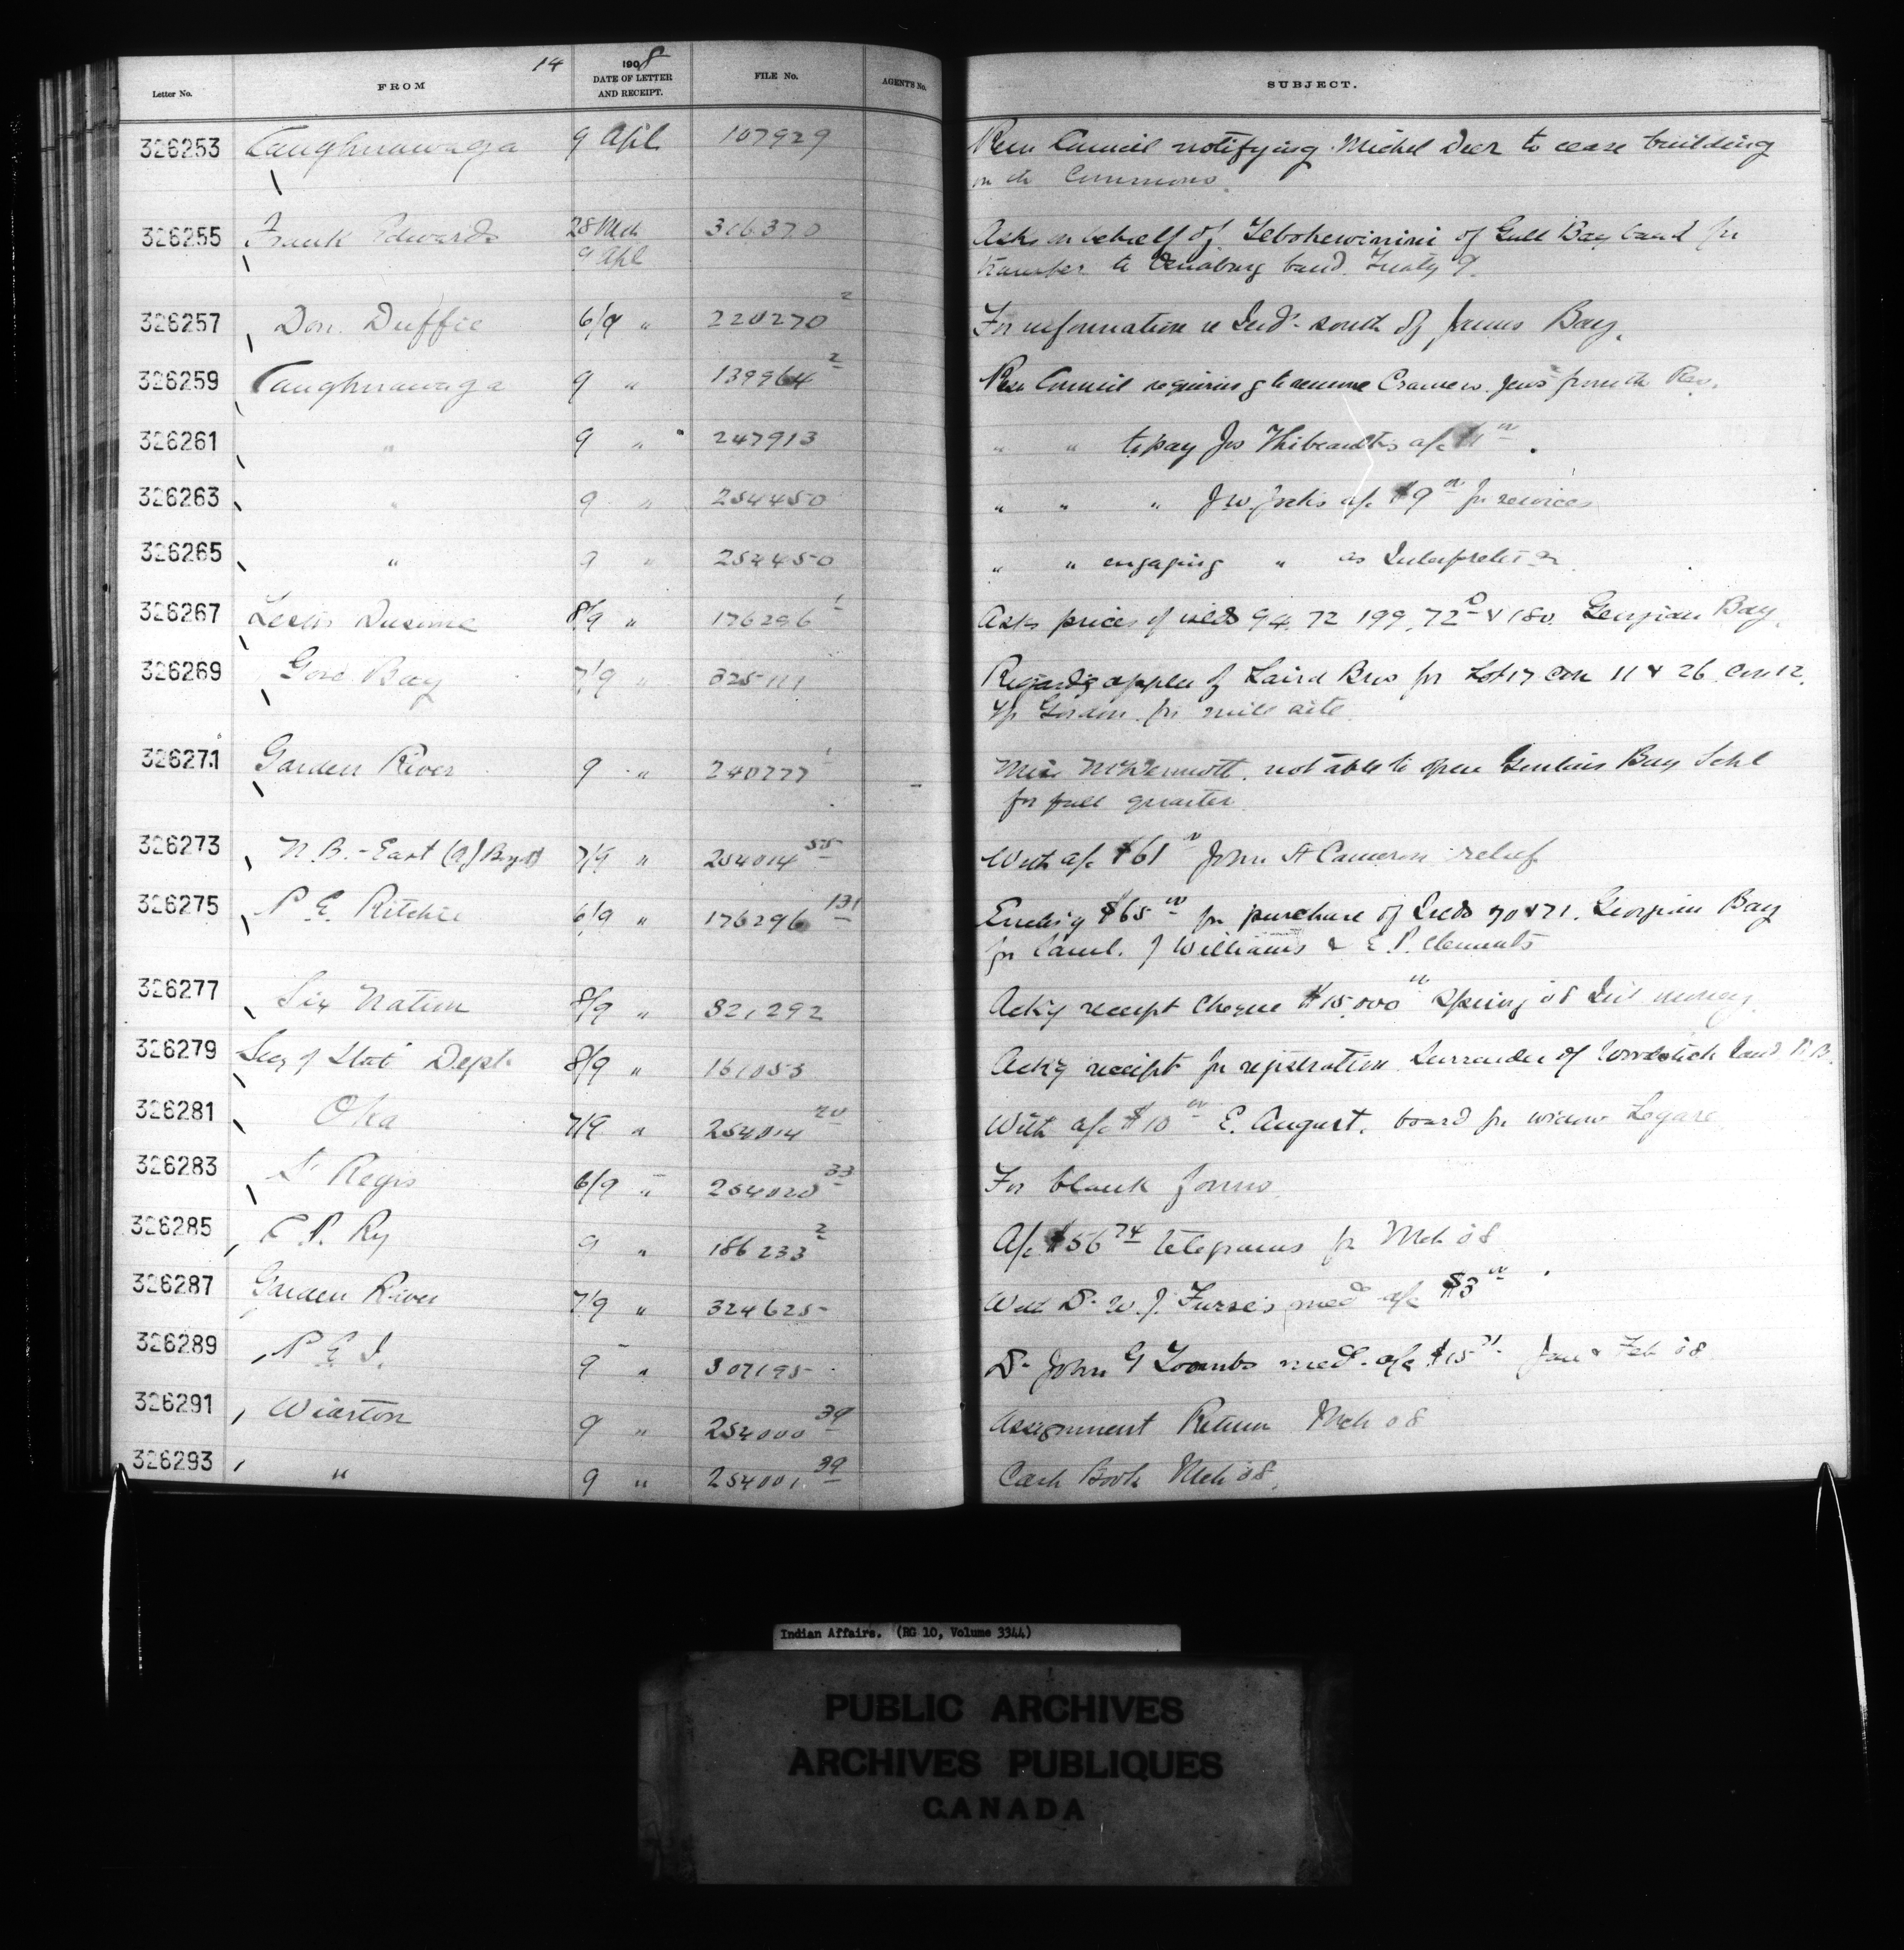 14
Letter No. FROM 1908 DATE OF LETTER AND RECEIPT. FILE No. AGENT'S No. SUBJECT.
326253 Caughnawaga 9 Apl 107929 Resn Council notifying Michel Deer to cease building
on the Commons.
326255 Frank Edwards 28 Mch 306370 Asks on behalf of of Gull Bay band for
9 Apl transfer to band. Treaty 9.
326257 Don. Duffie 6/9 " 220270 2 For information re Inds south of James Bay.
326259 Caughnawaga 9 " 139964 2 Resn Council requiring to remove from the Res.
326261 " 9 " 247913 " " to pay Jos Thibeault's a/c
326263 " 9 " 254450 " " " J W Jocks a/c $9 00 for services
326265 " 9 " 254450 " " engaging " as Interpreter
326267 8/9 " 176296 1 Asks prices of islds 94. 72 199, 72 D & 180. Georgian Bay.
326269 Gore Bay 7/9 " 325111 Regardg applen of Laird Bros for Lot 17 con 11 & 26 con 12.
Tp Gordon for mill site.
326271 Garden River 9 " 240777 1 Miss McDermott, not able to open Bay Schl
for full quarter.
326273 N.B. - East 7/9 " 254014 55 With a/c $61 00 John A Cameron relief
326275 P E. Ritchie 6/9 " 176296 131 Enclosg $65 00 for purchase of Islds 70 & 71. Georgian Bay
for J Williams & E. P. Clements
326277 Six Nation 8/9 " 321,292 Ackg receipt cheque $15,000 00 Spring 08 Int money.
326279 Secy of State Dept 8/9 " 161053 Ackg receipt for registration Surrender of Woodstock land N.B.
326281 Oka 7/9 " 254014 20 With a/c $10 00 E. August. board for widow Legare
326283 St Regis 6/9 " 254020 33 For blank forms
326285 C P. Ry 9 " 186233 2 A/c $56 74 telegrams for Mch 08
326287 Garden River 7/9 " 324625 With Dr W. J. Furse's med a/c $3 00
326289 P E I. 9 " 307195 Dr John G Toombs med. a/c $15 Jan & Feb 08
326291 Wiarton 9 " 254000 39 Assignment Return Mch 08
326293 " 9 " 254001 39 Cash Book Mch 08.
Indian Affairs. (RG 10, Volume 3344)
PUBLIC ARCHIVES
ARCHIVES PUBLIQUES
CANADA